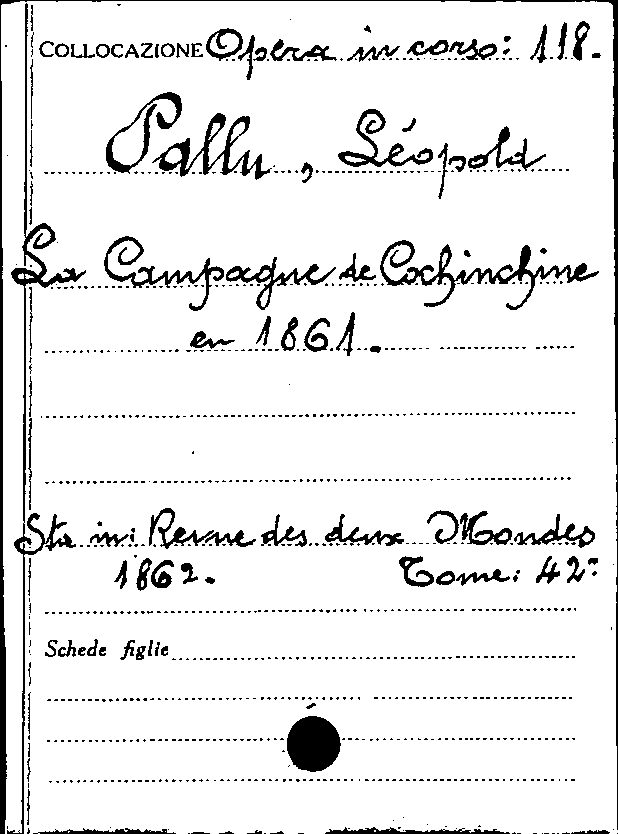 COLLOCAZIONE Opera in corso: 118.
Pallu, Léopold
La Campagne de Cochinchine
en 1861.
Sta in: Revue des deux Mondes
1862. Tome: 42°
Schede figlie